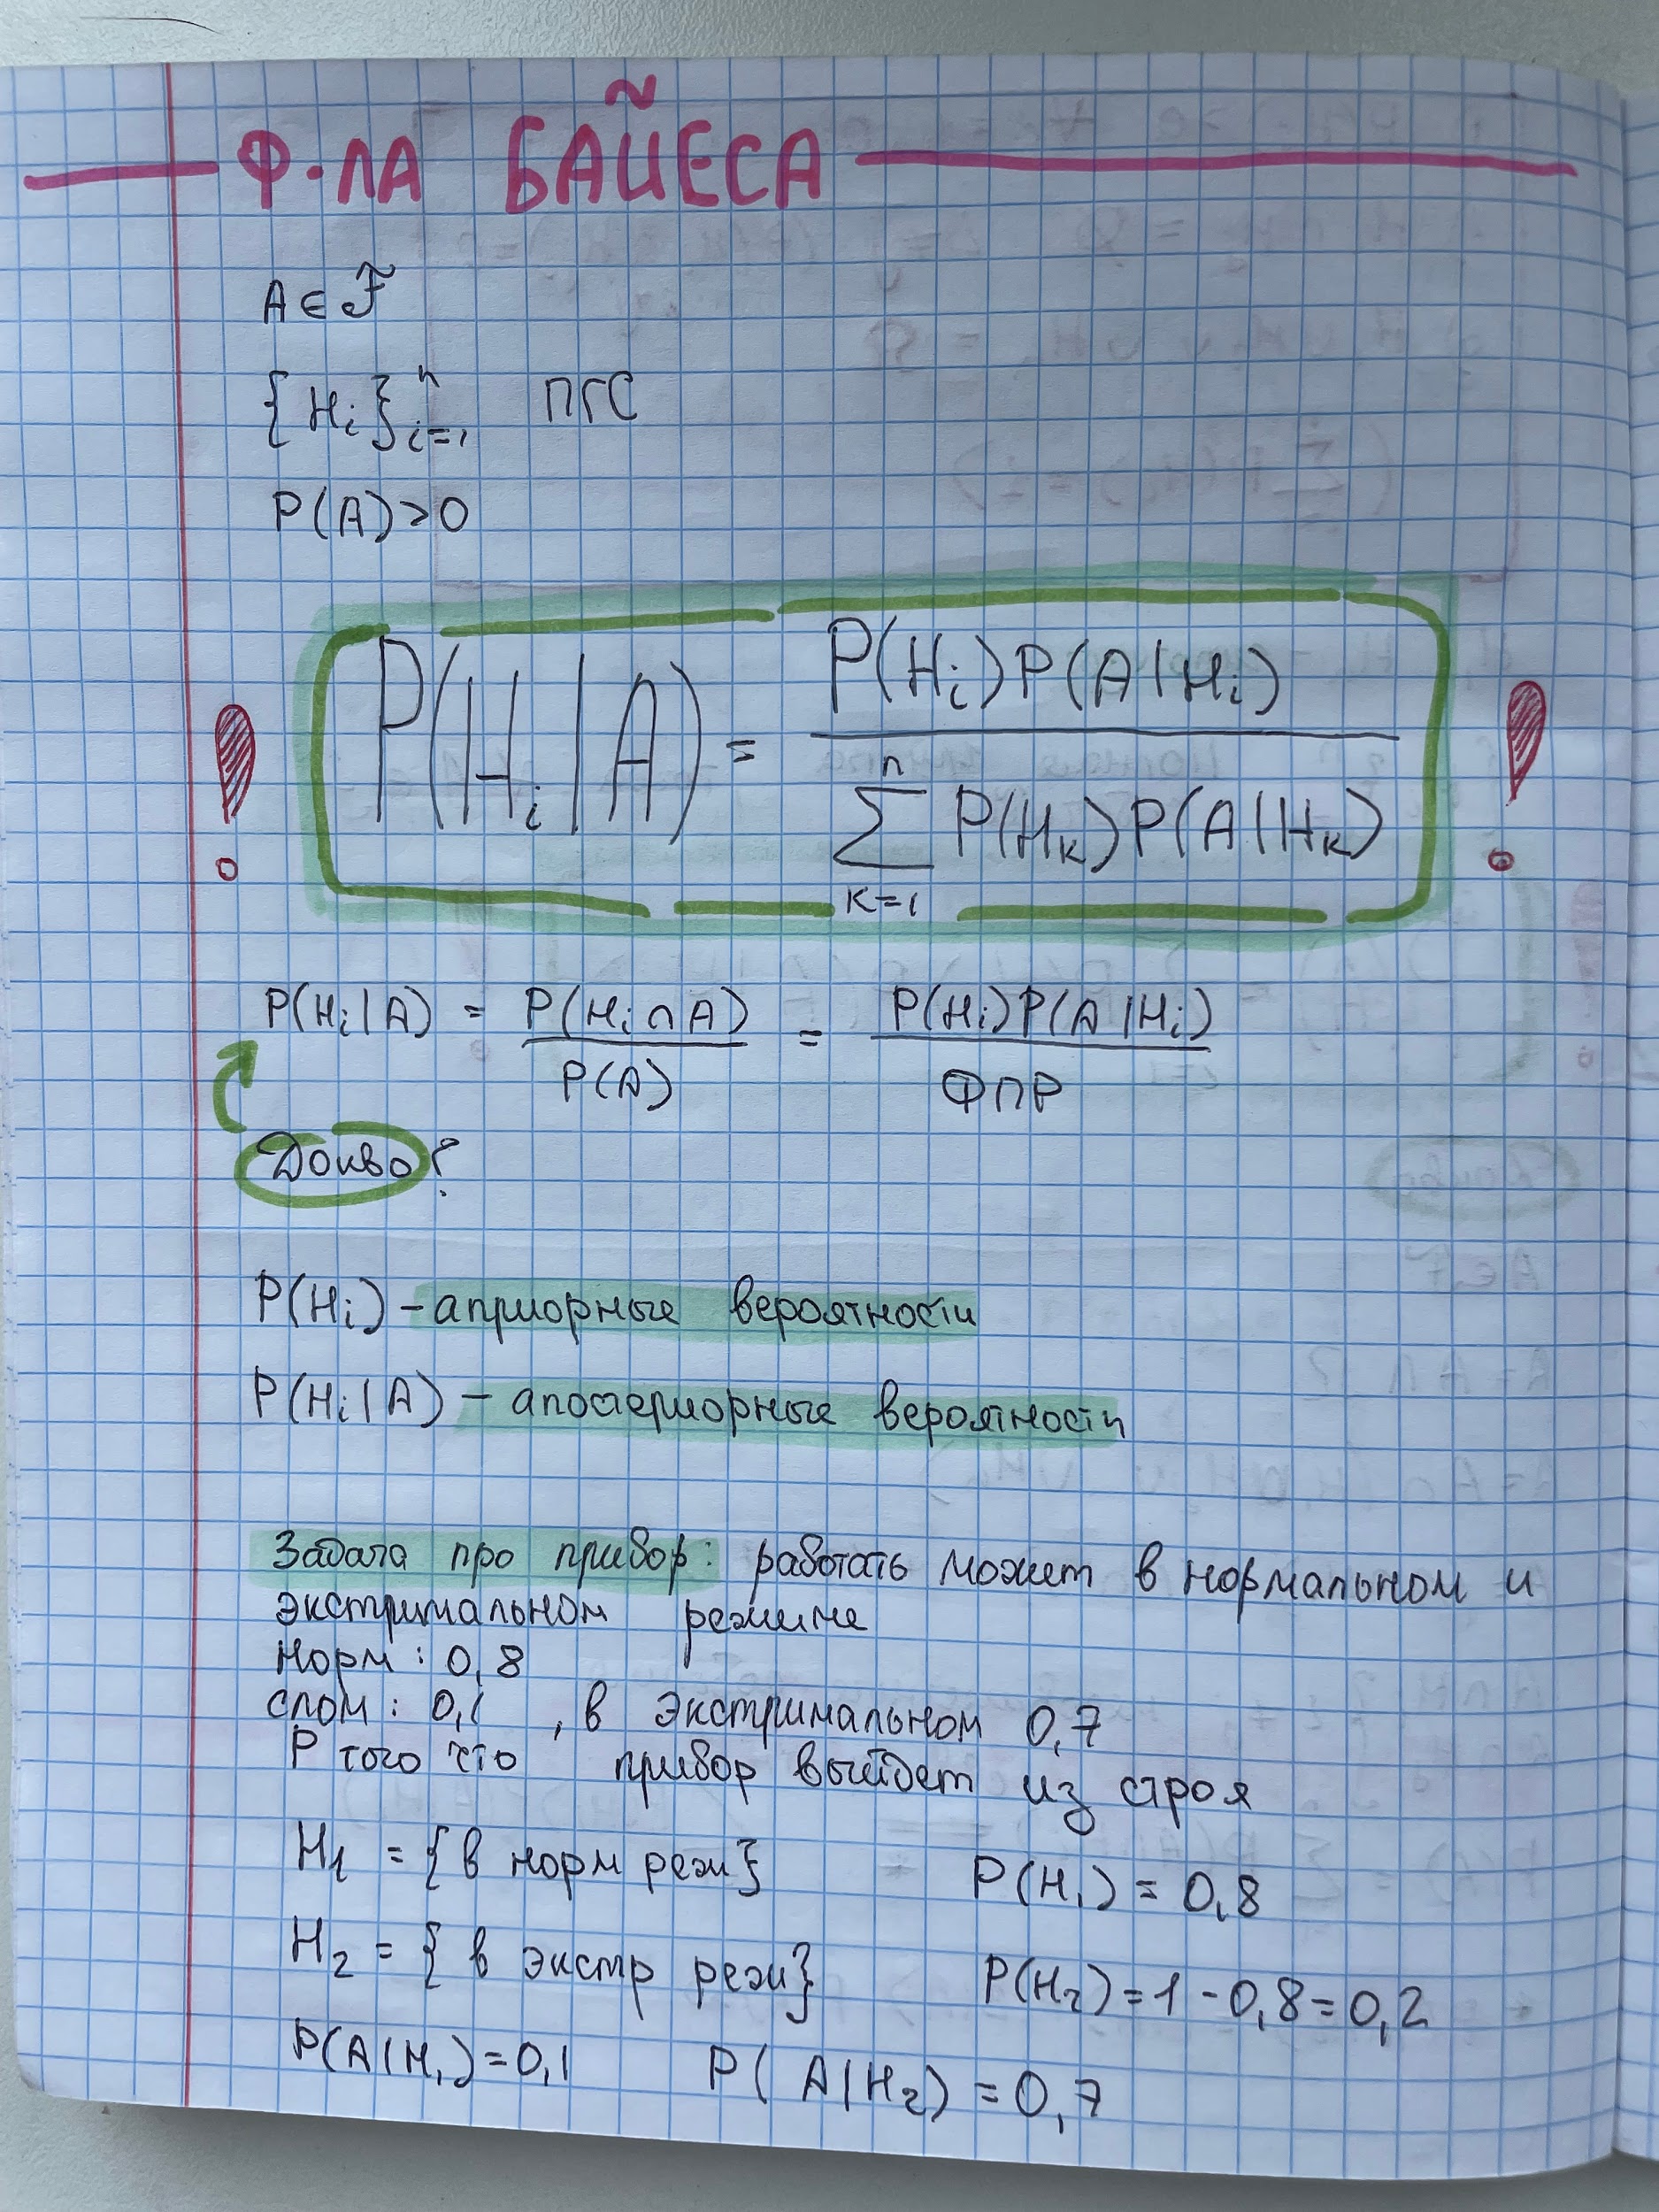 Ф-ЛА БАЙЕСА
A ∈ ℱ
{Hi}ⁿi=1 ПГС
P(A)>0
P(Hi|A) = P(Hi)P(A|Hi) / ∑ⁿk=1 P(Hk)P(A|Hk)
P(Hi|A) = P(Hi∩A) / P(A) = P(Hi)P(A|Hi) / ФПР
Докво?
P(Hi) – априорные вероятности
P(Hi|A) – апостериорные вероятности
Задача про прибор: работать может в нормальном и
экстримальном режиме
норм: 0,8
слом: 0,1 , в экстримальном 0,7
P того что прибор выйдет из строя
H1 = {в норм реж} P(H1) = 0,8
H2 = {в экстр реж} P(H2) = 1 - 0,8 = 0,2
P(A|H1) = 0,1 P(A|H2) = 0,7